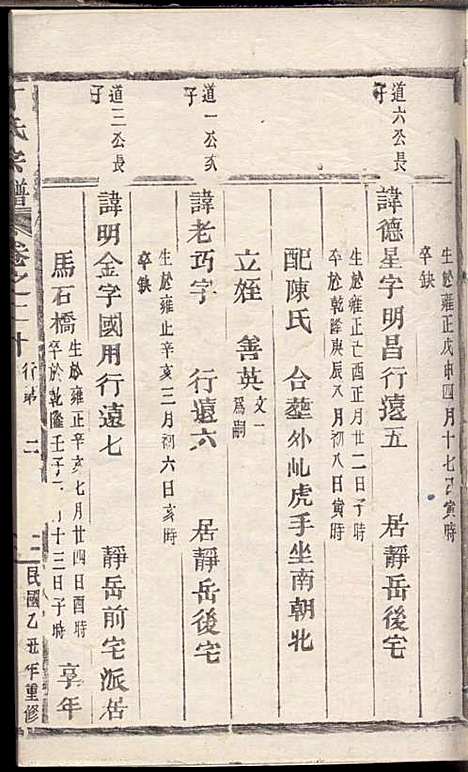 生於雍正戊申四月十七日寅時
卒缺
道六公長子
諱德星字明昌行遠五 居靜岳後宅
生於雍正己酉正月廿二日子時
卒於乾隆庚辰八月初八日寅時
配陳氏 合塟外虬虎手坐南朝北
立姪 善英文一為嗣
道一公次子
諱老巧字 行遠六 居靜岳後宅
生於雍正辛亥三月初六日亥時
卒缺
道三公長子
諱明金字國用行遠七 靜岳前宅派居
馬石橋生於雍正辛亥七月廿四日酉時
卒於乾隆壬子 十三日子時 享年
丁氏宗譜 卷之二十 行第 二 民國乙丑年重修